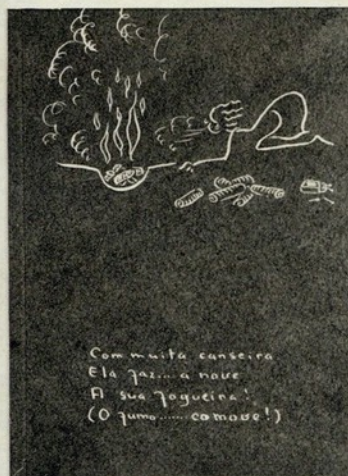 Com muita canseira
Ela faz... a nove
A sua fogueira!
(O fumo...... comove!)